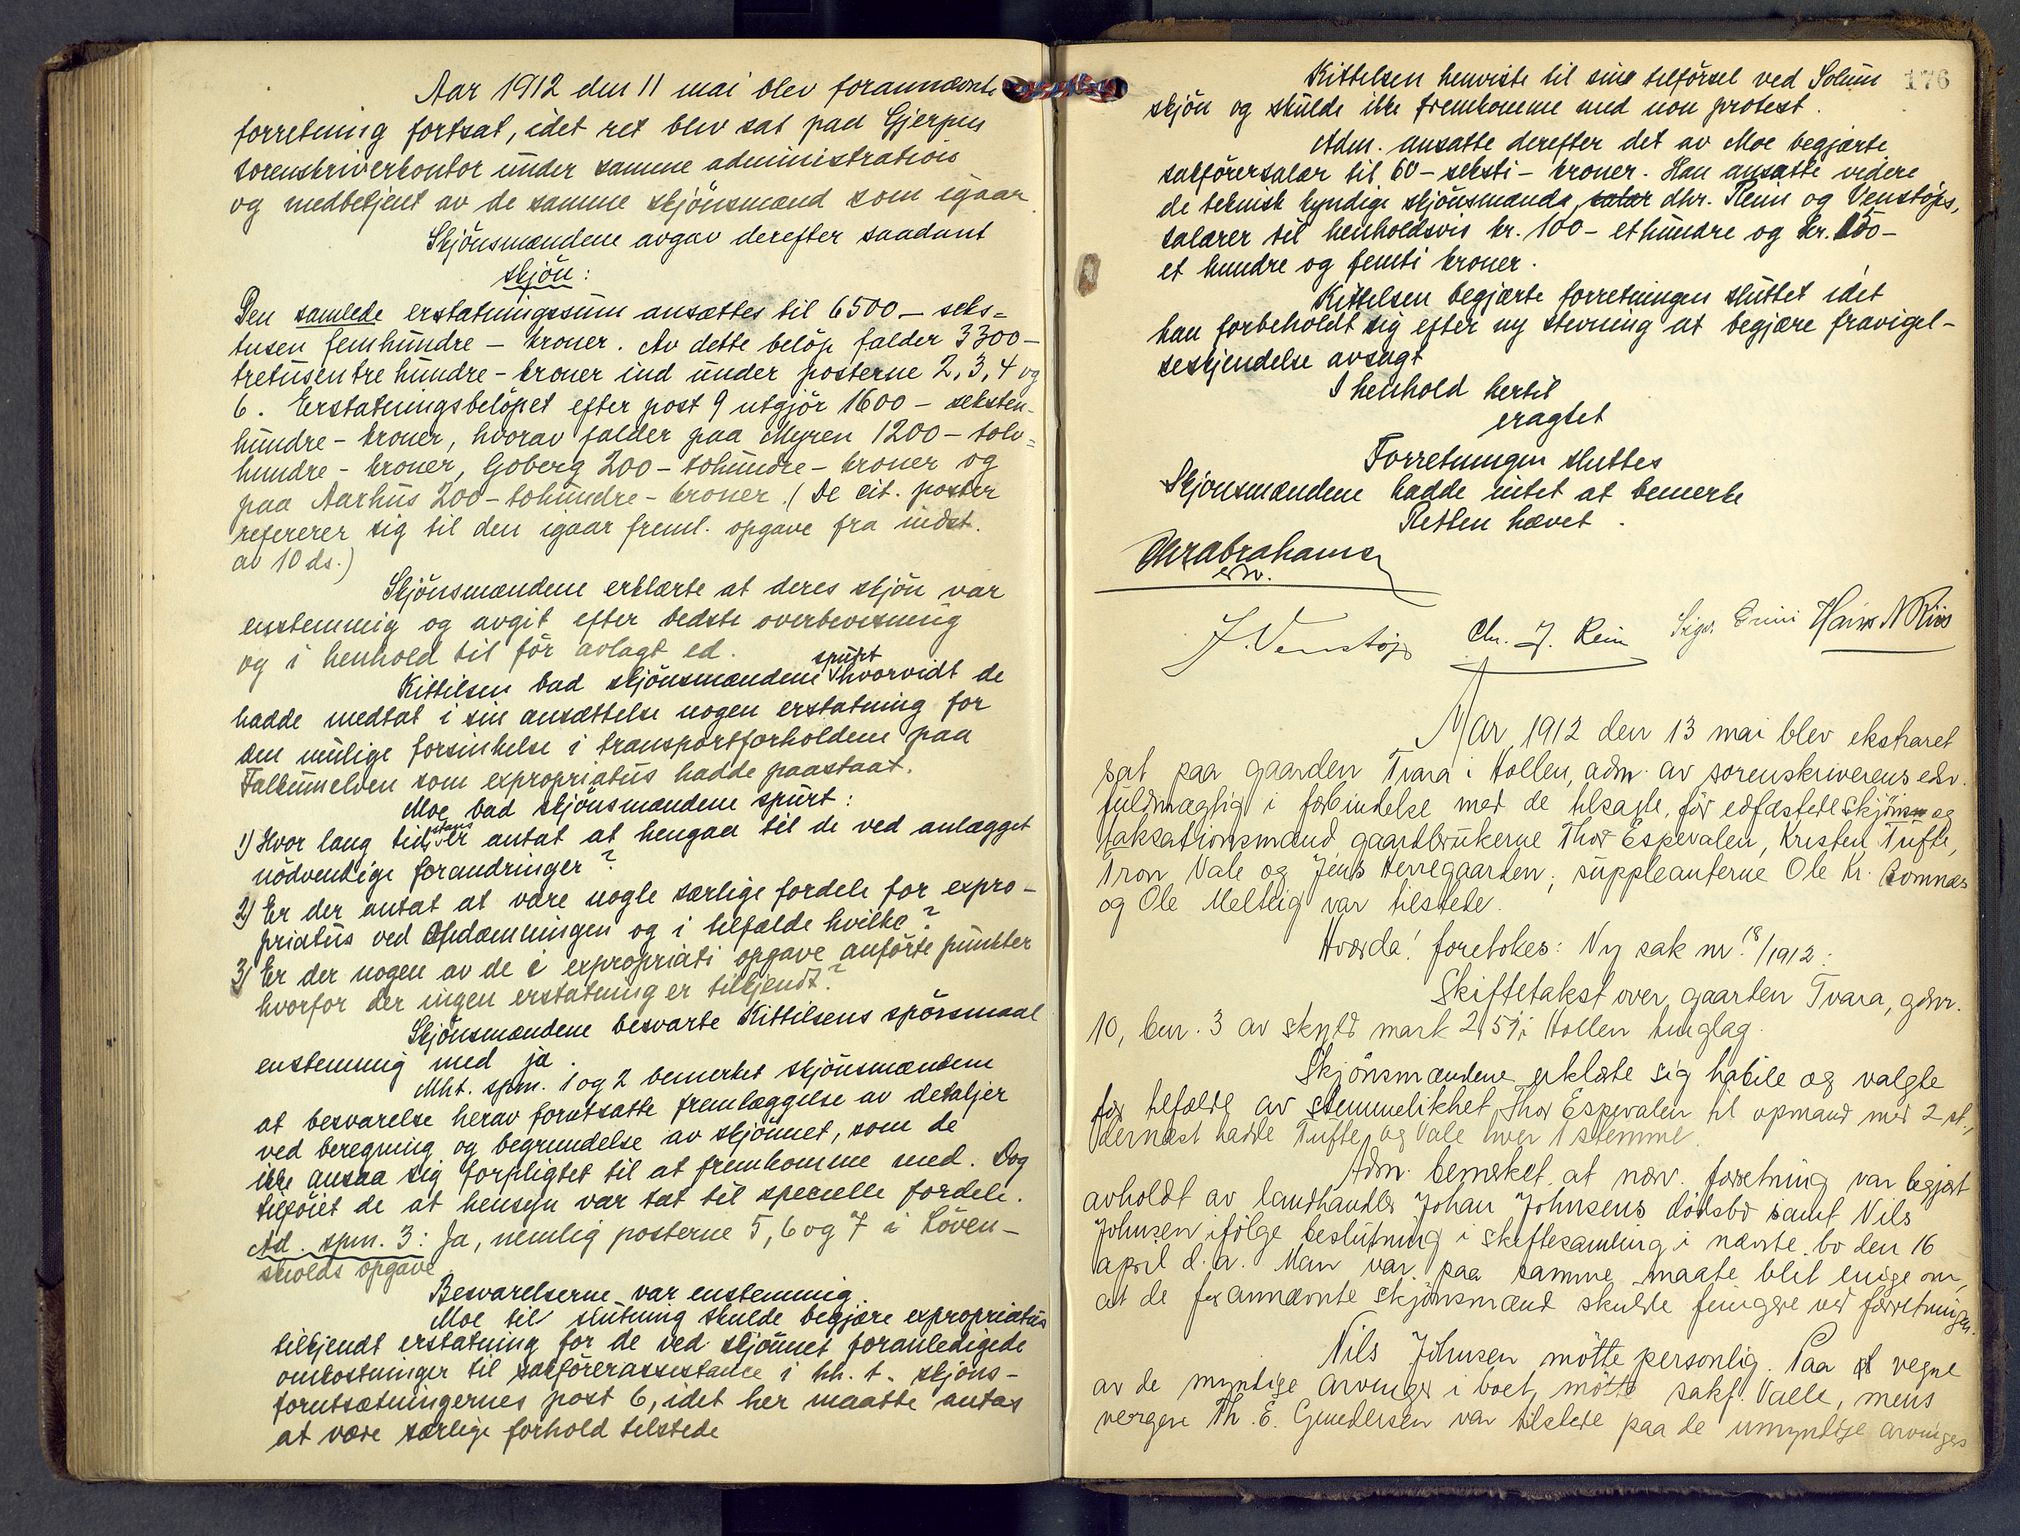 Aar 1912 den 11 mai blev forannævnte
forretning fortsat, idet ret blev sat paa Gjerpen
sorenskriverkontor under samme administration
og medbetjent av de samme skjönsmænd som igaar.
Skjönsmændene avgav derefter saadant
skjön:
Den samlede erstatningssum ansættes til 6500 – seks=
tusen femhundre – kroner. Av dette belöp falder 3300 –
tretusentrehundre – kroner ind under posterne 2, 3, 4 og
6. Erstatningsbelöpet efter post 9 utgjör 1600 – seksten-
hundre – kroner, hvorav falder paa Myren 1200 – tolv=
hundre – kroner, Goberg 200 – tohundre – kroner og
paa Aarhus 200 – tohundre – kroner. (De cit. poster
refererer sig til den igaar freml. opgave fra indst.
av 10 ds.)
Skjönsmændene erklærte at deres skjön var
enstemmig og avgit efter bedste overbevisning
og i henhold til för avlagt ed.
Kittilsen bad skjönsmændene spurt hvorvidt de
hadde medtat i sin ansættelse nogen erstatning for
den mulige forsinkelse i transportforholdene paa
Falkumelven som expropriatus hadde paastaat.
Moe bad skjönsmændene spurt:
1) Hvor lang tid er antat at hengaa til de ved anlægget
nödvendige forandringer?
2) Er der antat at være nogle særlige fordele for expro-
priatus ved Opdæmningen og i tilfælde hvilke?
3) Er der nogen av de i expropriati opgave anförte punkter
hvorfor der ingen erstatning er tilkjendt?
Skjönsmændene besvarte Kittilsens spörsmaal
enstemmig med ja.
Mht. spm. 1 og 2 bemerket skjönsmændene
at besvarelse herav forutsatte fremlæggelse av detaljer
ved beregning og begrundelse av skjönnet, som de
ikke ansaa sig forpligtet til at fremkomme med. Dog
tilföiet de at hensyn var tat til specielle fordele.
Ad. spm. 3: Ja, nemlig posterne 5, 6 og 7 i Löven-
skiolds opgave
Besvarelserne var enstemmig.
Moe til slutning skulde begjære expropriatus
tilkjendt erstatning for de ved skjönnet foranledigede
omkostninger til sakförerassistance i hh. t. skjöns-
forutsætningernes post 6, idet her maatte antas
at være særlige forhold tilstede
176
Kittelsen henviste til sin tilförsel ved Solum
skjön og skulde ikke fremkomme med non protest.
Adm. ansatte derefter det av Moe begjærte
sakförersalær til 60 – seksti – kroner. Han ansatte videre
de teknisk kyndige skjönsmænds, dhr. Rein og Venstöps,
salærer til henholdsvis kr. 100 – et hundre og kr. 150 –
et hundre og femti kroner.
Kittilsen begjærte forretningen sluttet idet
han forbeholdt sig efter ny stevning at begjære fravigel-
seskjendelse avsagt
I henhold hertil
eragtet
Forretningen sluttes
Skjönsmændene hadde intet at bemerke
Retten hævet.
Chr Abrahamsen
edsv.
J. Venstöp Chr. J. Rein Sigv. Grini Hans N Riis
Aar 1912 den 13 mai blev ekstraret
sat paa gaarden Tvara i Hollen, adm. av sorenskriverens edsv.
fuldmægtig i forbindelse med de tilsagte, før edfæstede skjöns og
taksationsmænd gaardbrukerne Thor Espevalen, Kristen Tufte,
Tron Vale og Jens Herregaarden; suppleanterne Ole Kr. Romnæs
og Ole Melteig var tilstede.
Hvorda! foretokes: Ny sak nr. 18/1912:
Skiftetakst over gaarden Tvara, gnr.
10, bnr. 3 av skyld mark 2,54 i Hollen tinglag.
Skjönsmændene erklærte sig habile og valgte
for tilfælde av stemmelikhet Thor Espevalen til opmand med 2 st.,
dernæst hadde Tufte og Vale hver 1 stemme.
Adm. bemerket at nærv. forretning var begjært
avholdt av landhandler Johan Johnsens dödsbo samt Nils
Johnsen ifölge beslutning i skiftesamling i nævnte bo den 16
april d. a. Man var paa samme maate blit enige om,
at de forannævnte skjönsmænd skulde fungere ved forretningen.
Nils Johnsen mötte personlig. Paa vegne
av de myndige arvinger i boet mötte sakf. Valle, mens
vergen Th. E. Gundersen var tilstede paa de umyndige arvinges